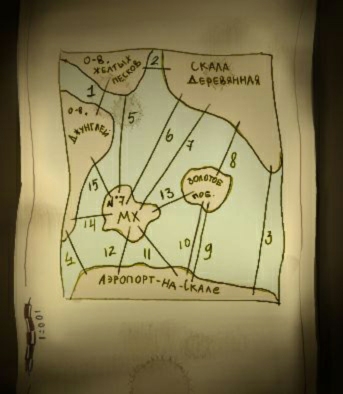 О-В.
ЖЕЛТЫХ
ПЕСКОВ
2
СКАЛА
ДЕРЕВЯННАЯ
1
О-В.
ДЖУНГЛЕЙ
5
6
7
8
15
ЗОЛОТОЕ
ПОБ.
13
№7
МХ
14
3
4
12
11
10
9
АЭРОПОРТ-НА-СКАЛЕ